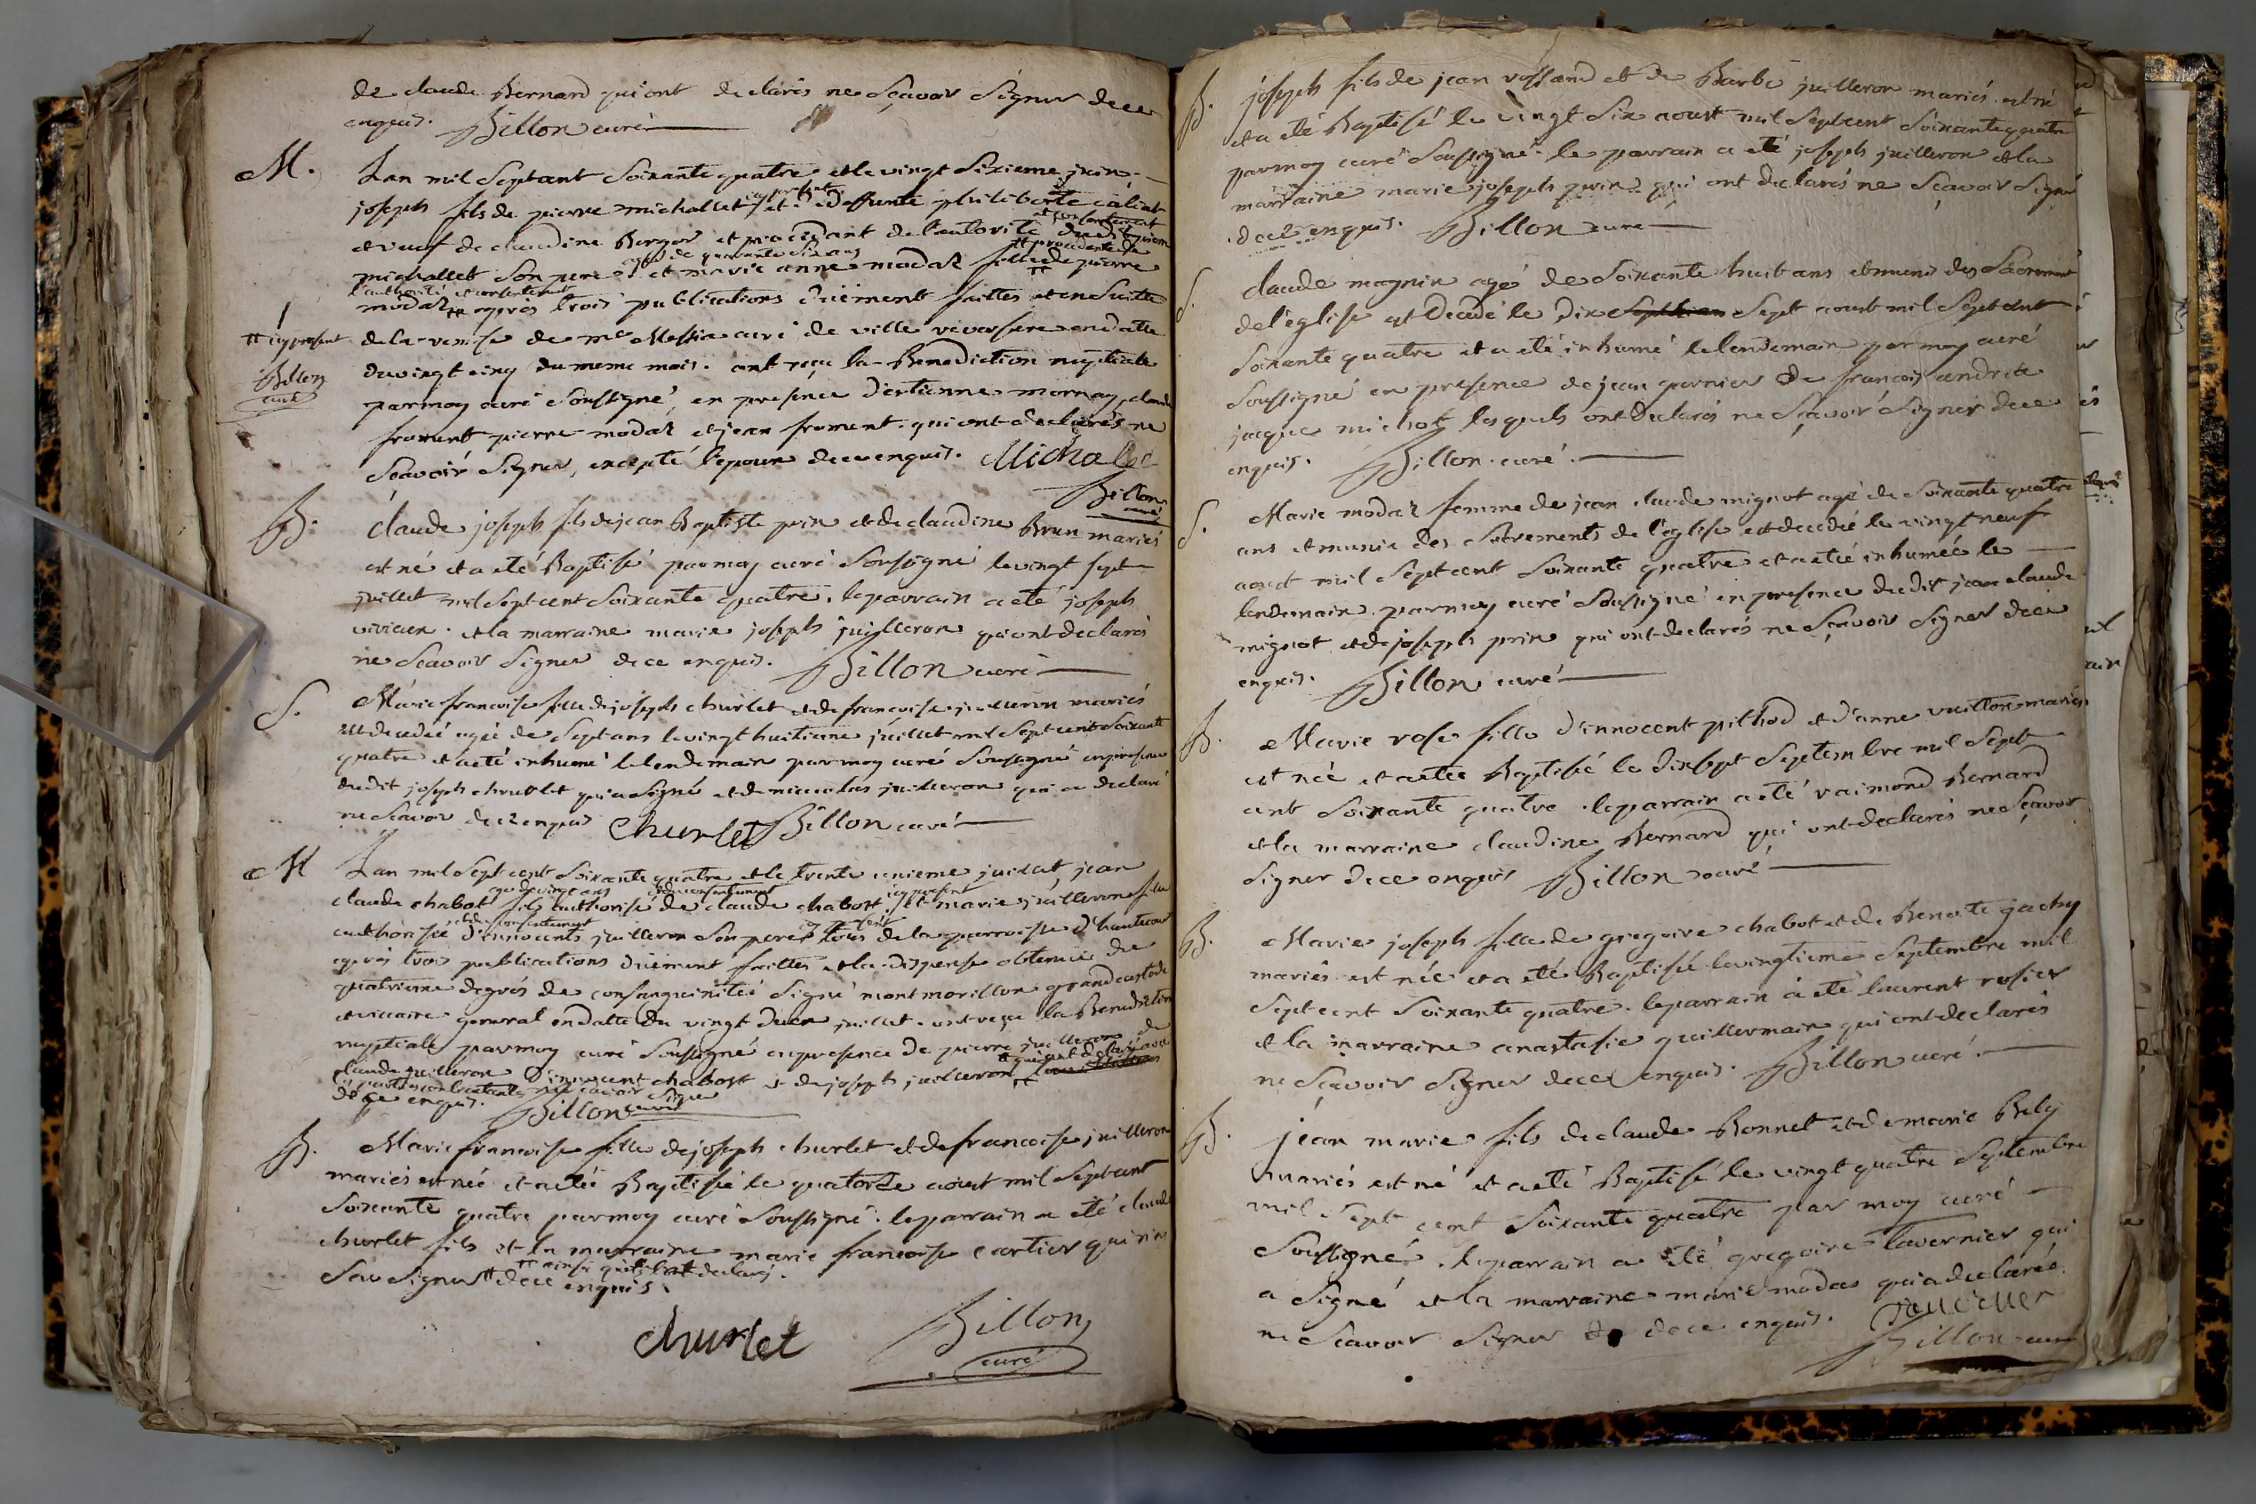 de claude Bernard qui ont declarés ne sçavoir signer de ce
enquis. Billon curé
M.
Lan mil sept cent soixante quatre et le vingt sixieme juin
joseph fils de pierre michallet et deffunte philiberte
cy present
et veuf de claudine Berger et procédant de l'autorité dudit pierre
et consentement
michallet son pere et marie anne modaz fille de pierre
agée de quarante six ans
procedante de
l'authorité et consentement
modaz après trois publications duëment faittes et en suitte
cy present
Billon
curé
de la remise de mre Messia curé de ville reversure en datte
du vingt cinq du meme mois. ont reçu la Benediction nuptiale
par moy curé soussigné, en presence d'estienne mornay, claude
froment pierre modaz et jean froment. qui ont declarés ne
sçavoir signer, excepté l'epoux de ce enquis. Michallet
Billon
curé
B.
Claude joseph fils de jean Baptiste prin et de claudine Brun mariés
est né et a eté Baptisé par moy curé soussigné le vingt sept
juillet mil sept cent soixante quatre. le parrain a eté joseph
vivien. et la marraine marie joseph juilleron qui ont declarés
ne sçavoir signer de ce enquis. Billon curé
S.
Marie francoise fille de joseph churlet et de francoise juilleron mariés
est decedée agée de sept ans le vingt huitieme juillet mil sept cent soixante
quatre et a eté inhumé le lendemain par moy curé soussigné en presence
dudit joseph churlet qui a signé et de nicolas juilleron qui a declaré
ne scavoir de ce enquis churlet Billon curé
M
Lan mil sept cent soixante quatre et le trente unieme juillet, jean
claude chabot fils authorisé de claude chabot et marie juilleron fille
agé de vingt ans et du consentement cy present
authorisée d'innocents juilleron son pere tous de la parroisse d'hautecour
et du consentement cy present
après trois publications duëment faittes et la dispense obtenuë du
quatrieme degrés de consanguinitée signé montmorillon grand custode
et vicaire general en datte du vingt deux juillet. ont reçu la Benediction
nuptiale par moy curé soussigné en presence de pierre juilleron de
claude juilleron d'innocent chabost et de joseph juilleron
qui ont declarés avec
les parties contractantes ne sçavoir signer
de ce enquis. Billon curé
B.
Marie francoise fille de joseph churlet et de francoise juilleron
mariés est née et a eté Baptisée le quatorze aoust mil sept cent
soixante quatre par moy curé soussigné. le parrain a été claude
churlet fils et la marraine marie francoise cartier qui n'a
sçu signer de ce enquis.
ainsi qu'elle a declaré.
churlet
Billon
curé
B.
joseph fils de jean vossand et de Barbe juilleron mariés. est né
et a eté Baptisé le vingt six aoust mil sept cent soixante quatre
par moy curé soussigné. le parrain a eté joseph juilleron et la
marraine marie joseph prin qui ont declarés ne sçavoir signé
de ce enquis. Billon curé
S.
claude magnin agé de soixante huit ans et muni des sacrements
de l'eglise est decedé le dix sept aout mil sept cent
soixante quatre et a eté inhumé le lendemain par moy curé
soussigné en presence de jean garnier de françois andre et
jacque michot lesquels ont declarés ne sçavoir signer de ce
enquis. Billon curé
S.
Marie modaz femme de jean claude mignot agé de soixante quatre
ans et munie des sacrements de l'eglise est decedée le vingt neuf
aout mil sept cent soixante quatre et a eté inhumée le
lendemain par moy curé soussigné en presence dudit jean claude
mignot et de joseph prin qui ont declarés ne sçavoir signer de ce
enquis. Billon curé
B.
Marie rose fille d'innocent pithod et d'anne vuillon mariés
est née et a etée Baptisée le dix sept septembre mil sept
cent soixante quatre. le parrain a eté raimond Bernard
et la marraine claudine Bernard qui ont declarés ne sçavoir
signer de ce enquis Billon curé
B.
Marie joseph fille de gregoire chabot et de Benoite gachy
mariés est née et a eté Baptisée le vingtieme septembre mil
sept cent soixante quatre. le parrain a eté laurent rosier
et la marraine anastasie guillermain qui ont declarés
ne sçavoir signer de ce enquis. Billon curé.
B.
jean marie fils de claude Bonnet et de marie Bely
mariés est né et a eté Baptisé le vingt quatre septembre
mil sept cent soixante quatre par moy curé
soussigné. le parrain a eté gregoire tavernier qui
a signé et la marraine marie modas qui a declarée
ne sçavoir signer de ce enquis.
Billon curé